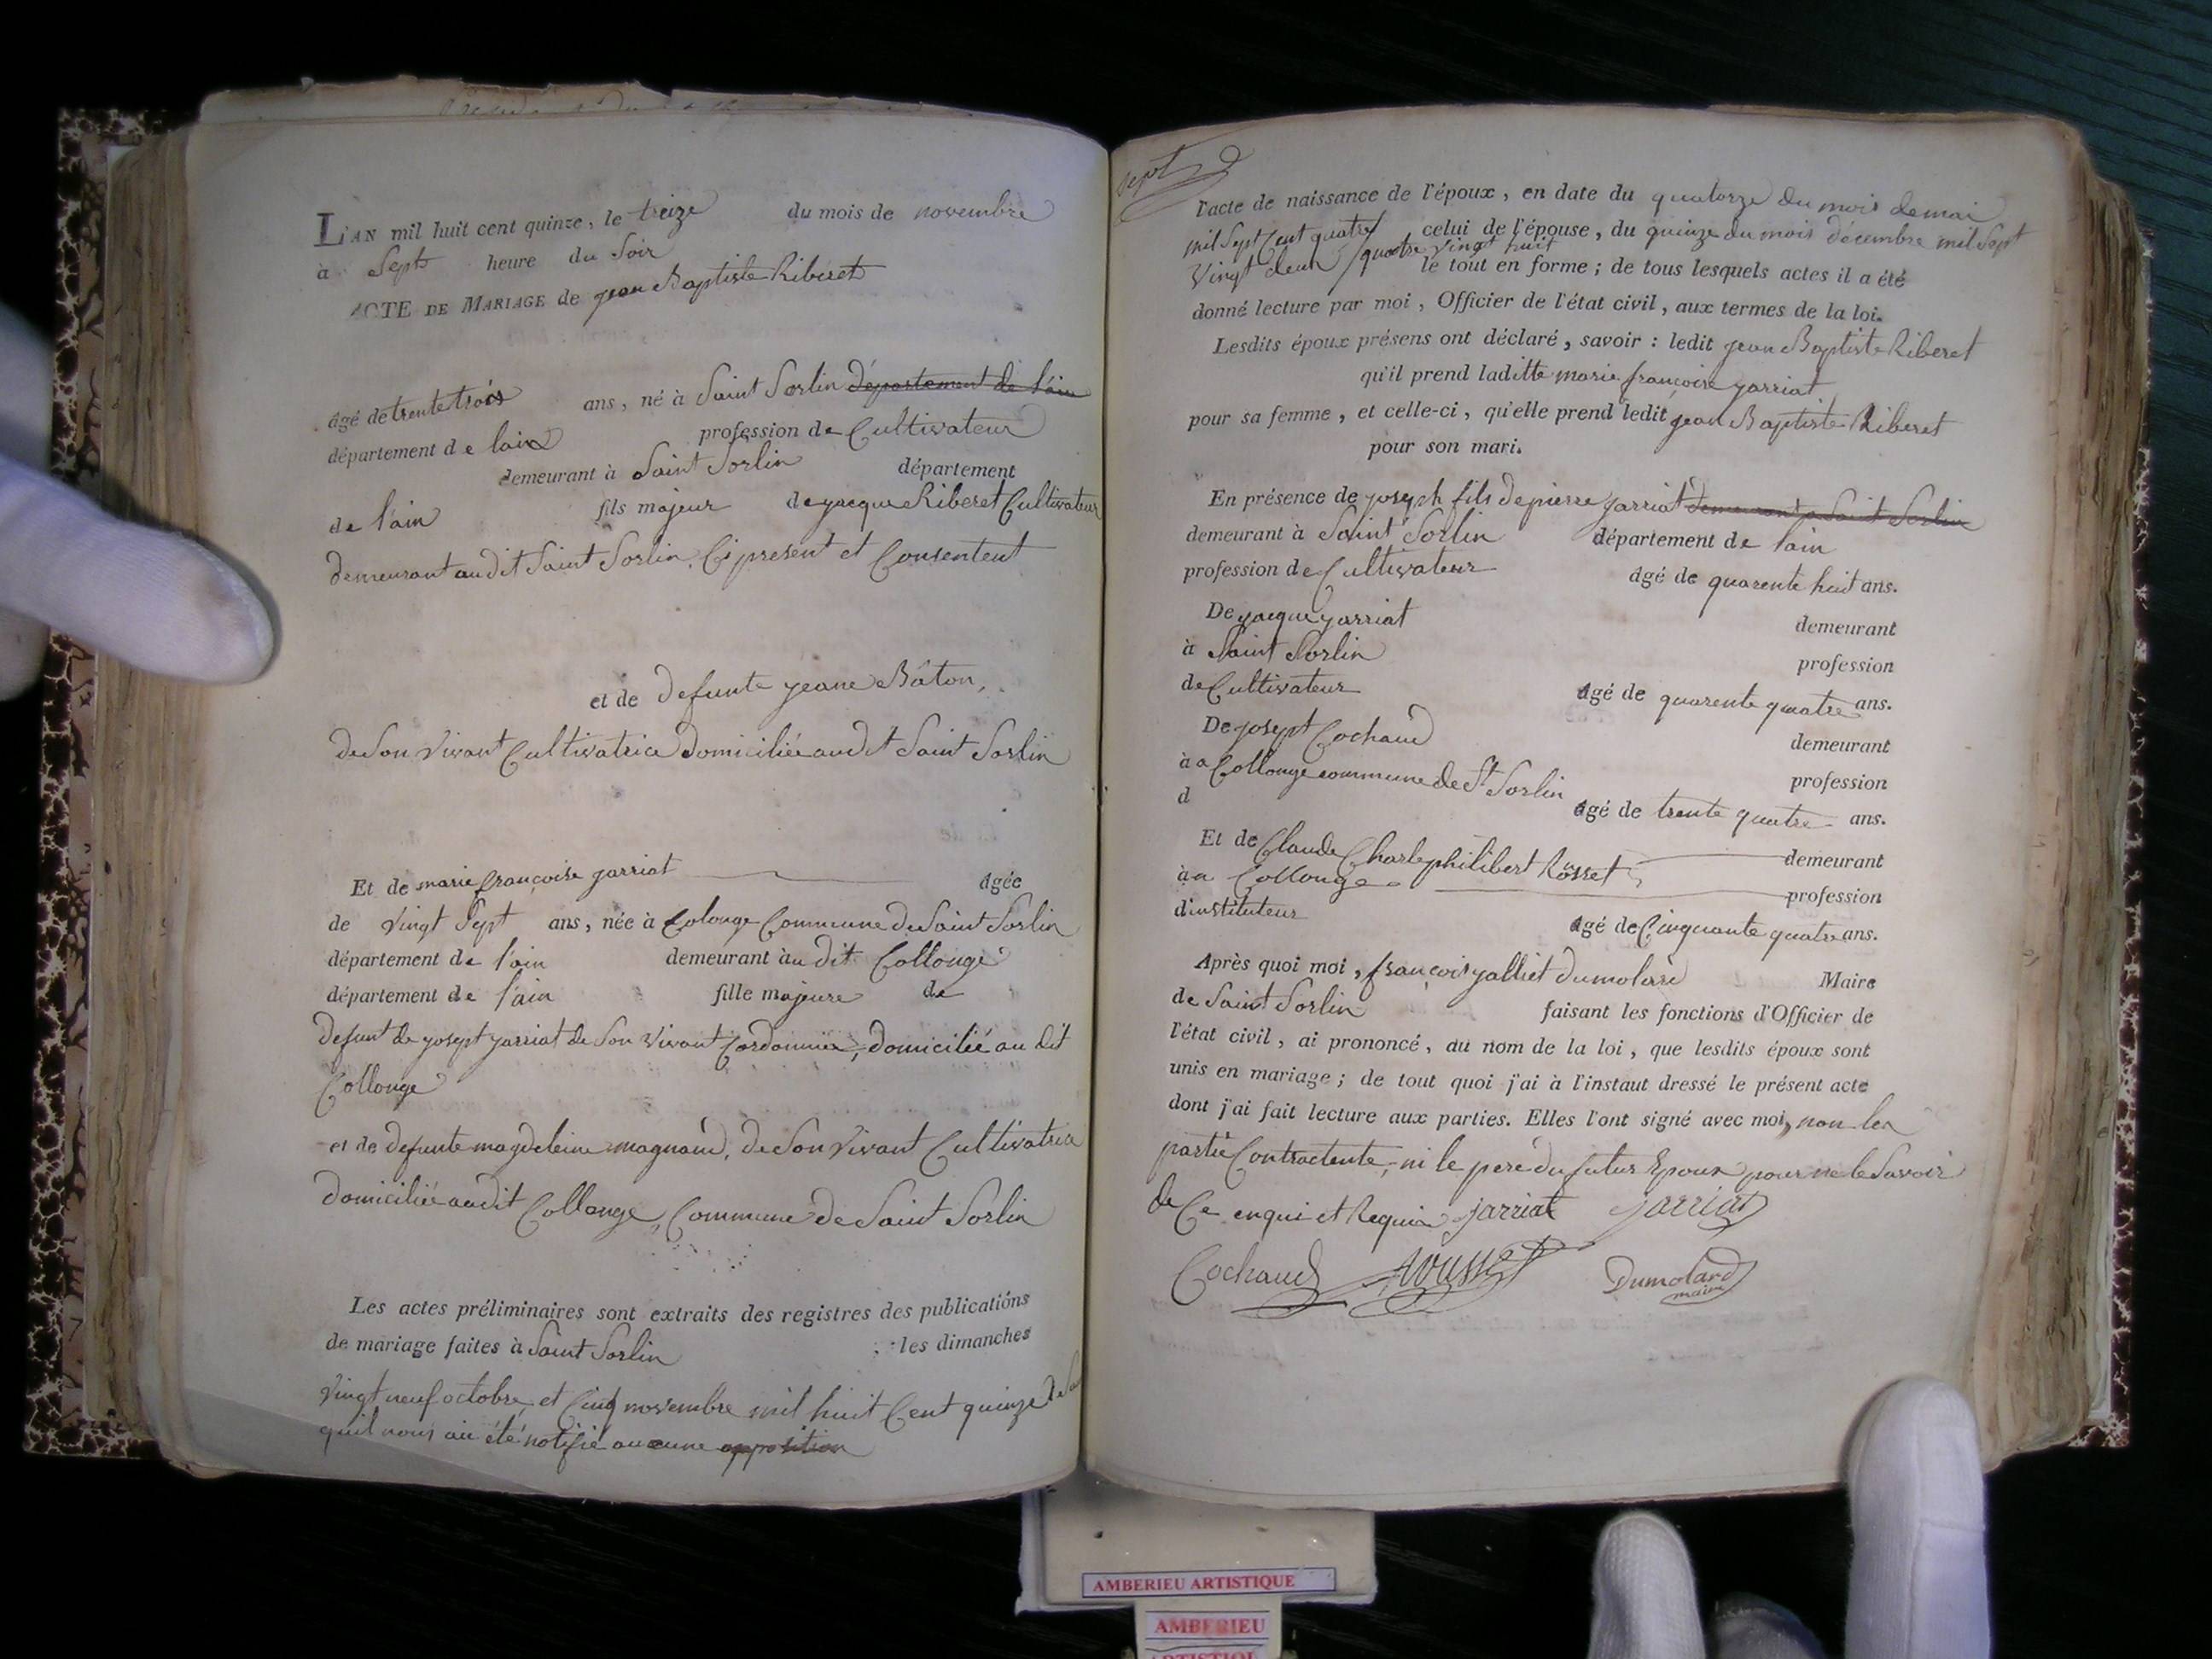 L'AN mil huit cent quinze, le treize du mois de novembre
à Sept heure du Soir
ACTE DE MARIAGE de jean Baptiste Riberet
âgé de trente trois ans, né à Saint Sorlin département de l'ain
département de lain profession de Cultivateur
demeurant à Saint Sorlin département
de l'ain fils majeur de jacque Riberet Cultivateur
demeurant audit Saint Sorlin, Ci present et Consentent
et de defunte jeane Bâton,
de Son Vivant Cultivatrice domiciliée audit Saint Sorlin
Et de marie françoise jarriat âgée
de Vingt Sept ans, née à Colonge Commune de Saint Sorlin
département de l'ain demeurant àu dit Collonge
département de l'ain fille majeure de
defunt de josept jarriat de Son Vivant Cordonnier, domicilié au dit
Collonge
et de defunte magdeleine magnand, de Son Vivant Cultivatrice
domiciliée audit Collonge, Commune de Saint Sorlin
Les actes préliminaires sont extraits des registres des publications
de mariage faites à Saint Sorlin les dimanches
Vingt neuf octobre, et Cinq novembre mil huit Cent quinze
quil nous ai été notifié aucune opposition
l'acte de naissance de l'époux, en date du quatorze du mois de mai
mil Sept Cent quatre celui de l'épouse, du quinze du mois décembre mil Sept
Vingt deux / quatre Vingt huit
le tout en forme; de tous lesquels actes il a été
donné lecture par moi, Officier de l'état civil, aux termes de la loi.
Lesdits époux présens ont déclaré, savoir: ledit jean Baptiste Riberet
qu'il prend laditte marie françoise jarriat
pour sa femme, et celle-ci, qu'elle prend ledit jean Baptiste Riberet
pour son mari.
En présence de joseph fils de pierre jarriat demeurant a Saint Sorlin
demeurant à Saint Sorlin département de lain
profession de Cultivateur âgé de quarente huit ans.
De jacque jarriat demeurant
à Saint Sorlin profession
de Cultivateur âgé de quarente quatre ans.
De josept Cochaud demeurant
à a Collonge commune de St Sorlin profession
d âgé de trente quatre ans.
Et de Claude Charle philibert Rosset demeurant
à a Collonge profession
d'instituteur âgé de Cinquante quatre ans.
Après quoi moi, françois jalliet dumolard Maire
de Saint Sorlin faisant les fonctions d'Officier de
l'état civil, ai prononcé, au nom de la loi, que lesdits époux sont
unis en mariage; de tout quoi j'ai à l'instaut dressé le présent acte
dont j'ai fait lecture aux parties. Elles l'ont signé avec moi, non les
partie Contractente, ni le pere du futur Epoux pour ne le Savoir
de Ce enqui et Requis jarriat jarriat
Cochaud Dumolard
maire
AMBERIEU ARTISTIQUE
AMBERIEU
ARTISTIQUE